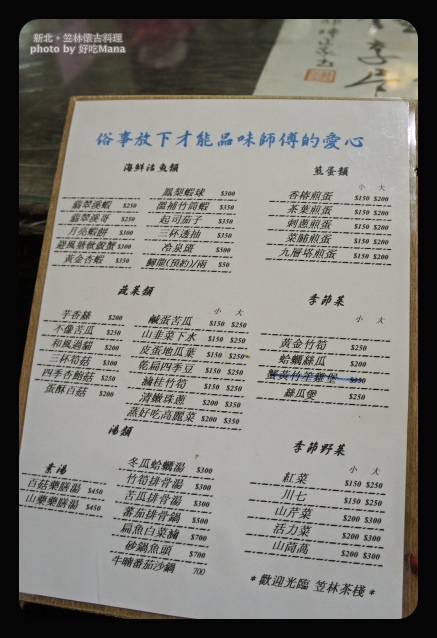 新北。笠林懷古料理
photo by 好吃Mana
俗事放下才能品味師傅的愛心
海鮮活魚類
翡翠溪蝦 $250
翡翠溪哥 $250
月亮蝦餅 $300
避風塘軟殼蟹 $300
黃金杏蝦 $350
鳳梨蝦球 $300
溫補竹筒蝦 $350
起司茄子 $350
三杯透抽 $350
冷泉斑 $500
鱘龍(預約)/兩 $50
煎蛋類
小 大
香椿煎蛋 $150 $200
茶葉煎蛋 $150 $200
刺蔥煎蛋 $150 $200
菜脯煎蛋 $150 $200
九層塔煎蛋 $150 $200
蔬菜類
芋香絲 $200
不像苦瓜 $250
和風過貓 $200
三杯筍菇 $300
四季杏鮑菇 $250
蛋酥百菇 $200
小 大
鹹蛋苦瓜 $150 $250
山韭菜下水 $150 $250
皮蛋地瓜葉 $150 $250
乾扁四季豆 $150 $250
滷桂竹筍 $150 $250
清嫩珠蔥 $200 $300
蒸好吃高麗菜 $200 $350
季節菜
小 大
黃金竹筍 $250
蛤蠣絲瓜 $200
蟹黃竹笙雞煲 $350
絲瓜煲 $250
湯類
素湯
百菇藥膳湯 $450
山藥藥膳湯 $450
冬瓜蛤蠣湯 $300
竹筍排骨湯 $300
苦瓜排骨湯 $300
蕃茄排骨鍋 $500
扁魚白菜滷 $700
砂鍋魚頭 $700
牛腩番茄沙鍋 700
季節野菜
小 大
紅菜 $150 $250
川七 $150 $250
山芹菜 $200 $300
活力菜 $200 $300
山茼萵 $200 $300
*歡迎光臨 笠林茶棧*